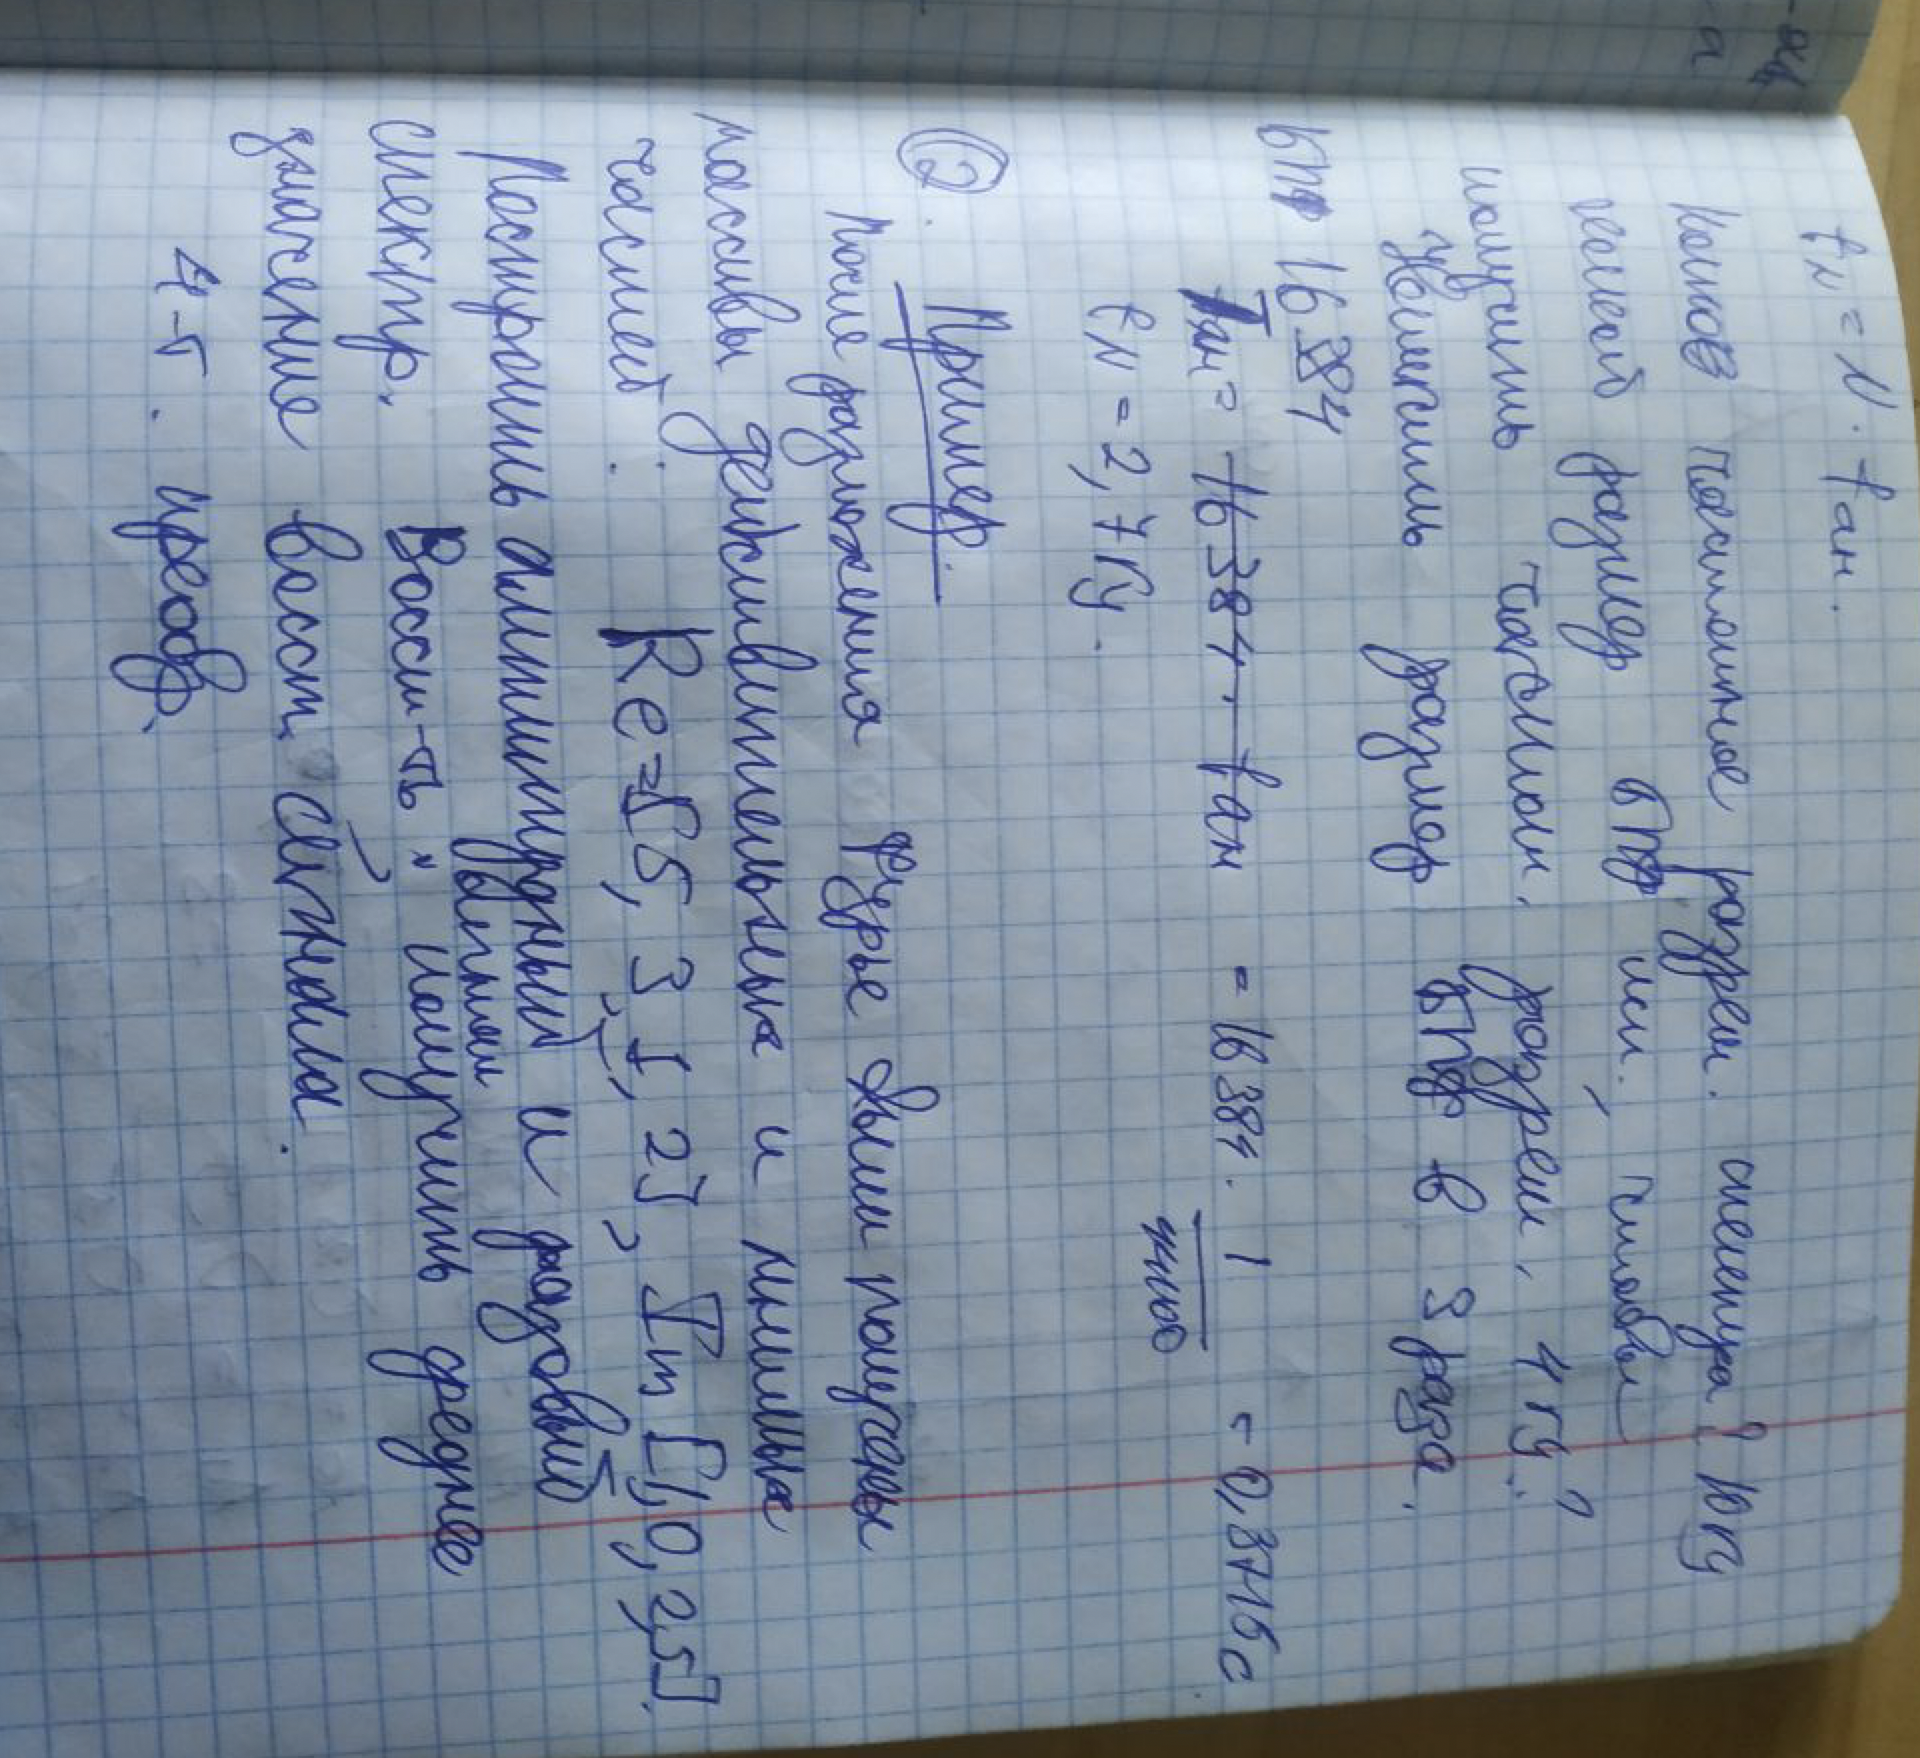 fN = N · fан.
Каково частотное разреш. спектра? 10 Гц
какой размер БПФ исп., чтобы
получить частотн. разреш. 4 Гц?
Увеличить размер БПФ в 3 раза.
БПФ 16 384
Tан = 16384 · fан = 16384 · 1 / = 0,3716 с
fN = 2,7 Гц.
② Пример.
После разложения Фурье были получены
массивы действительных и мнимых
частей: Re = [5, 3, 1, 2], Im [1, 0, 2, 5].
Построить амплитудный и фазовый
спектр. Восст-ть и получить среднее
значение восст. сигнала.
преобр.